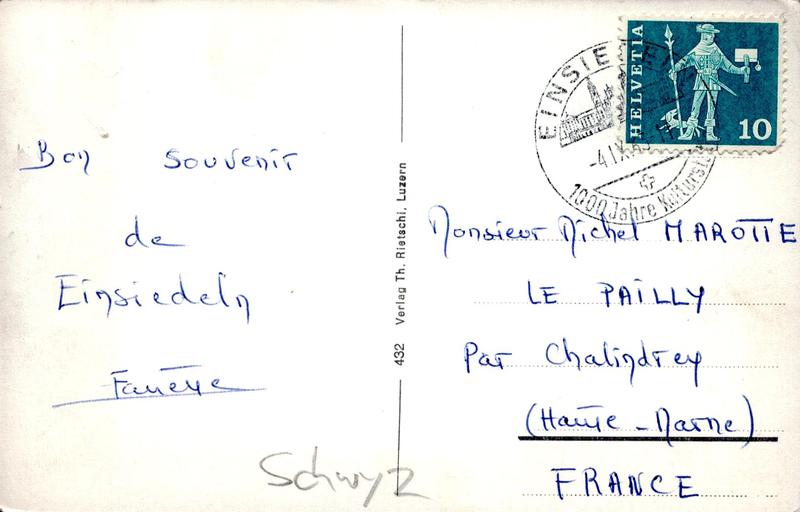 Bon Souvenir
de
Einsiedeln
432 Verlag Th. Rietschi, Luzern
Schwyz
EINSIEDELN
-4.IX.63
1000 Jahre Kulturst
HELVETIA
10
Monsieur Michel MAROTTE
LE PAILLY
Par Chalindrey
(Haute-Marne)
FRANCE